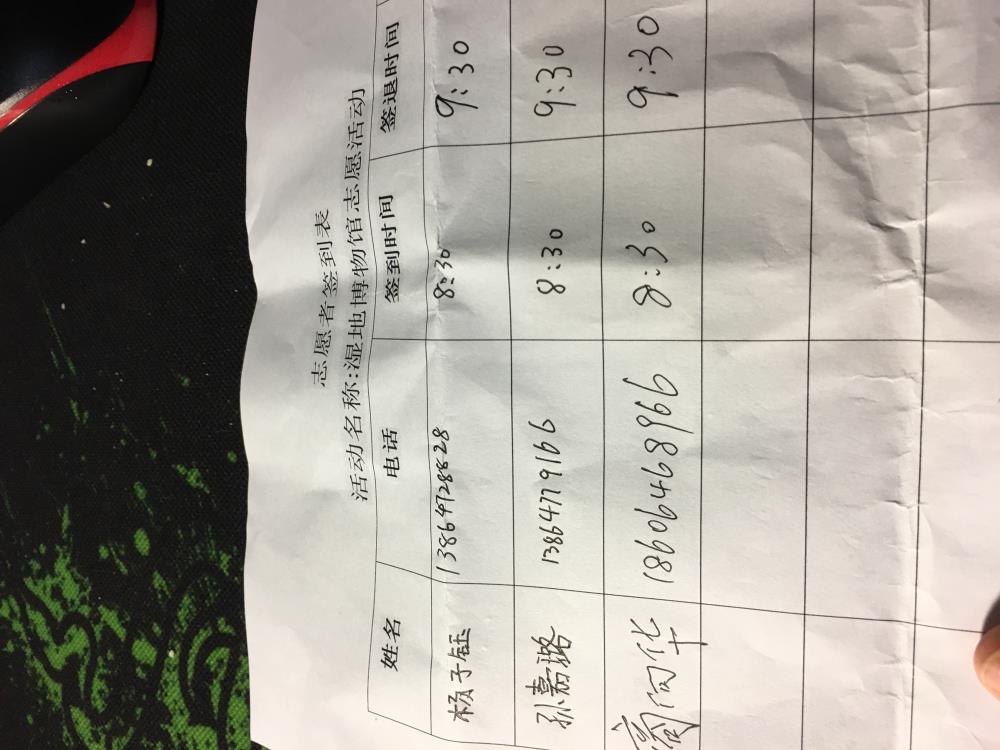 志愿者签到表
活动名称:湿地博物馆志愿活动
姓名 电话 签到时间 签退时间
杨子钰 13864728828 8:30 9:30
孙嘉璐 13864779166 8:30 9:30
商向华 18606468966 8:30 9:30